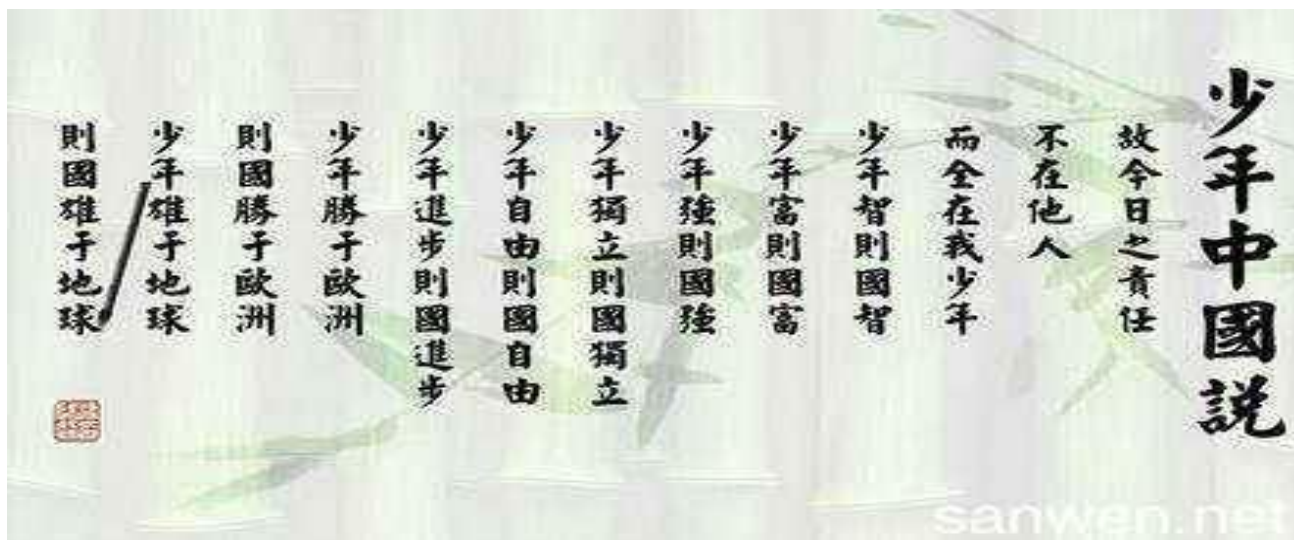 少年中國説
故今日之責任
不在他人
而全在我少年
少年智則國智
少年富則國富
少年強則國強
少年獨立則國獨立
少年自由則國自由
少年進步則國進步
少年勝于歐洲
則國勝于歐洲
少年雄于地球
則國雄于地球
sanwen.net